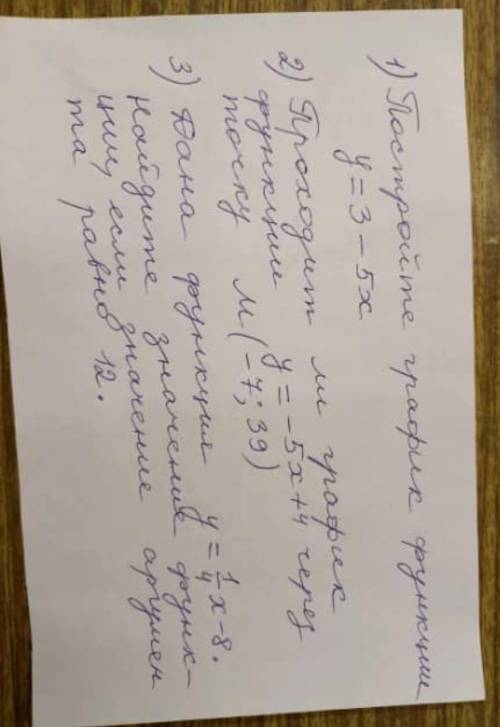 1) Постройте график функции
y = 3 - 5x
2) Проходит ли график
функции y = -5x+4 через
точку М (-7; 39)
3) Дана функция y = 1/4 x - 8.
Найдите значение функ-
ции, если значение аргумен
та равно 12.